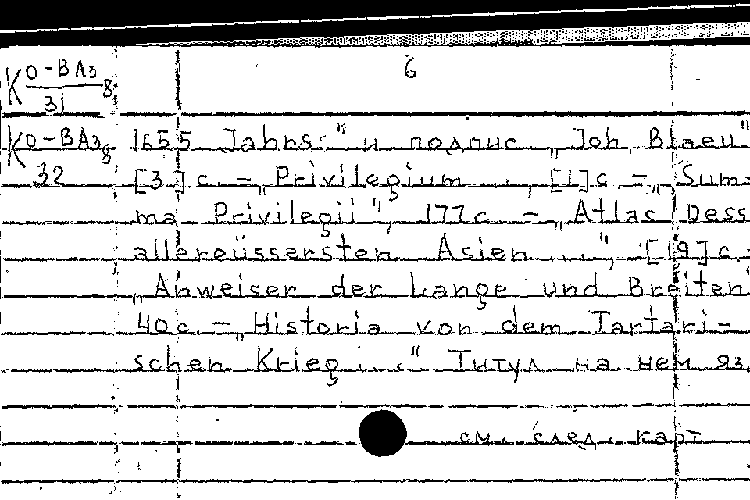 6
К О-ВАз 8
31
К О-ВАз 8
32
1655 Jahrs." и подпис „Joh. Blaeu"
[3] с. – „Privilegium...", [1] с. – „Sum-
ma Privilegii", 177 с. – „Atlas Dess
allereüssersten Asien...", [19] с. –
„Anweiser der Lange und Breiten
40 с. – „Historia von dem Tartari-
schen Krieg..." Титул на нем яз.
см. след. карт